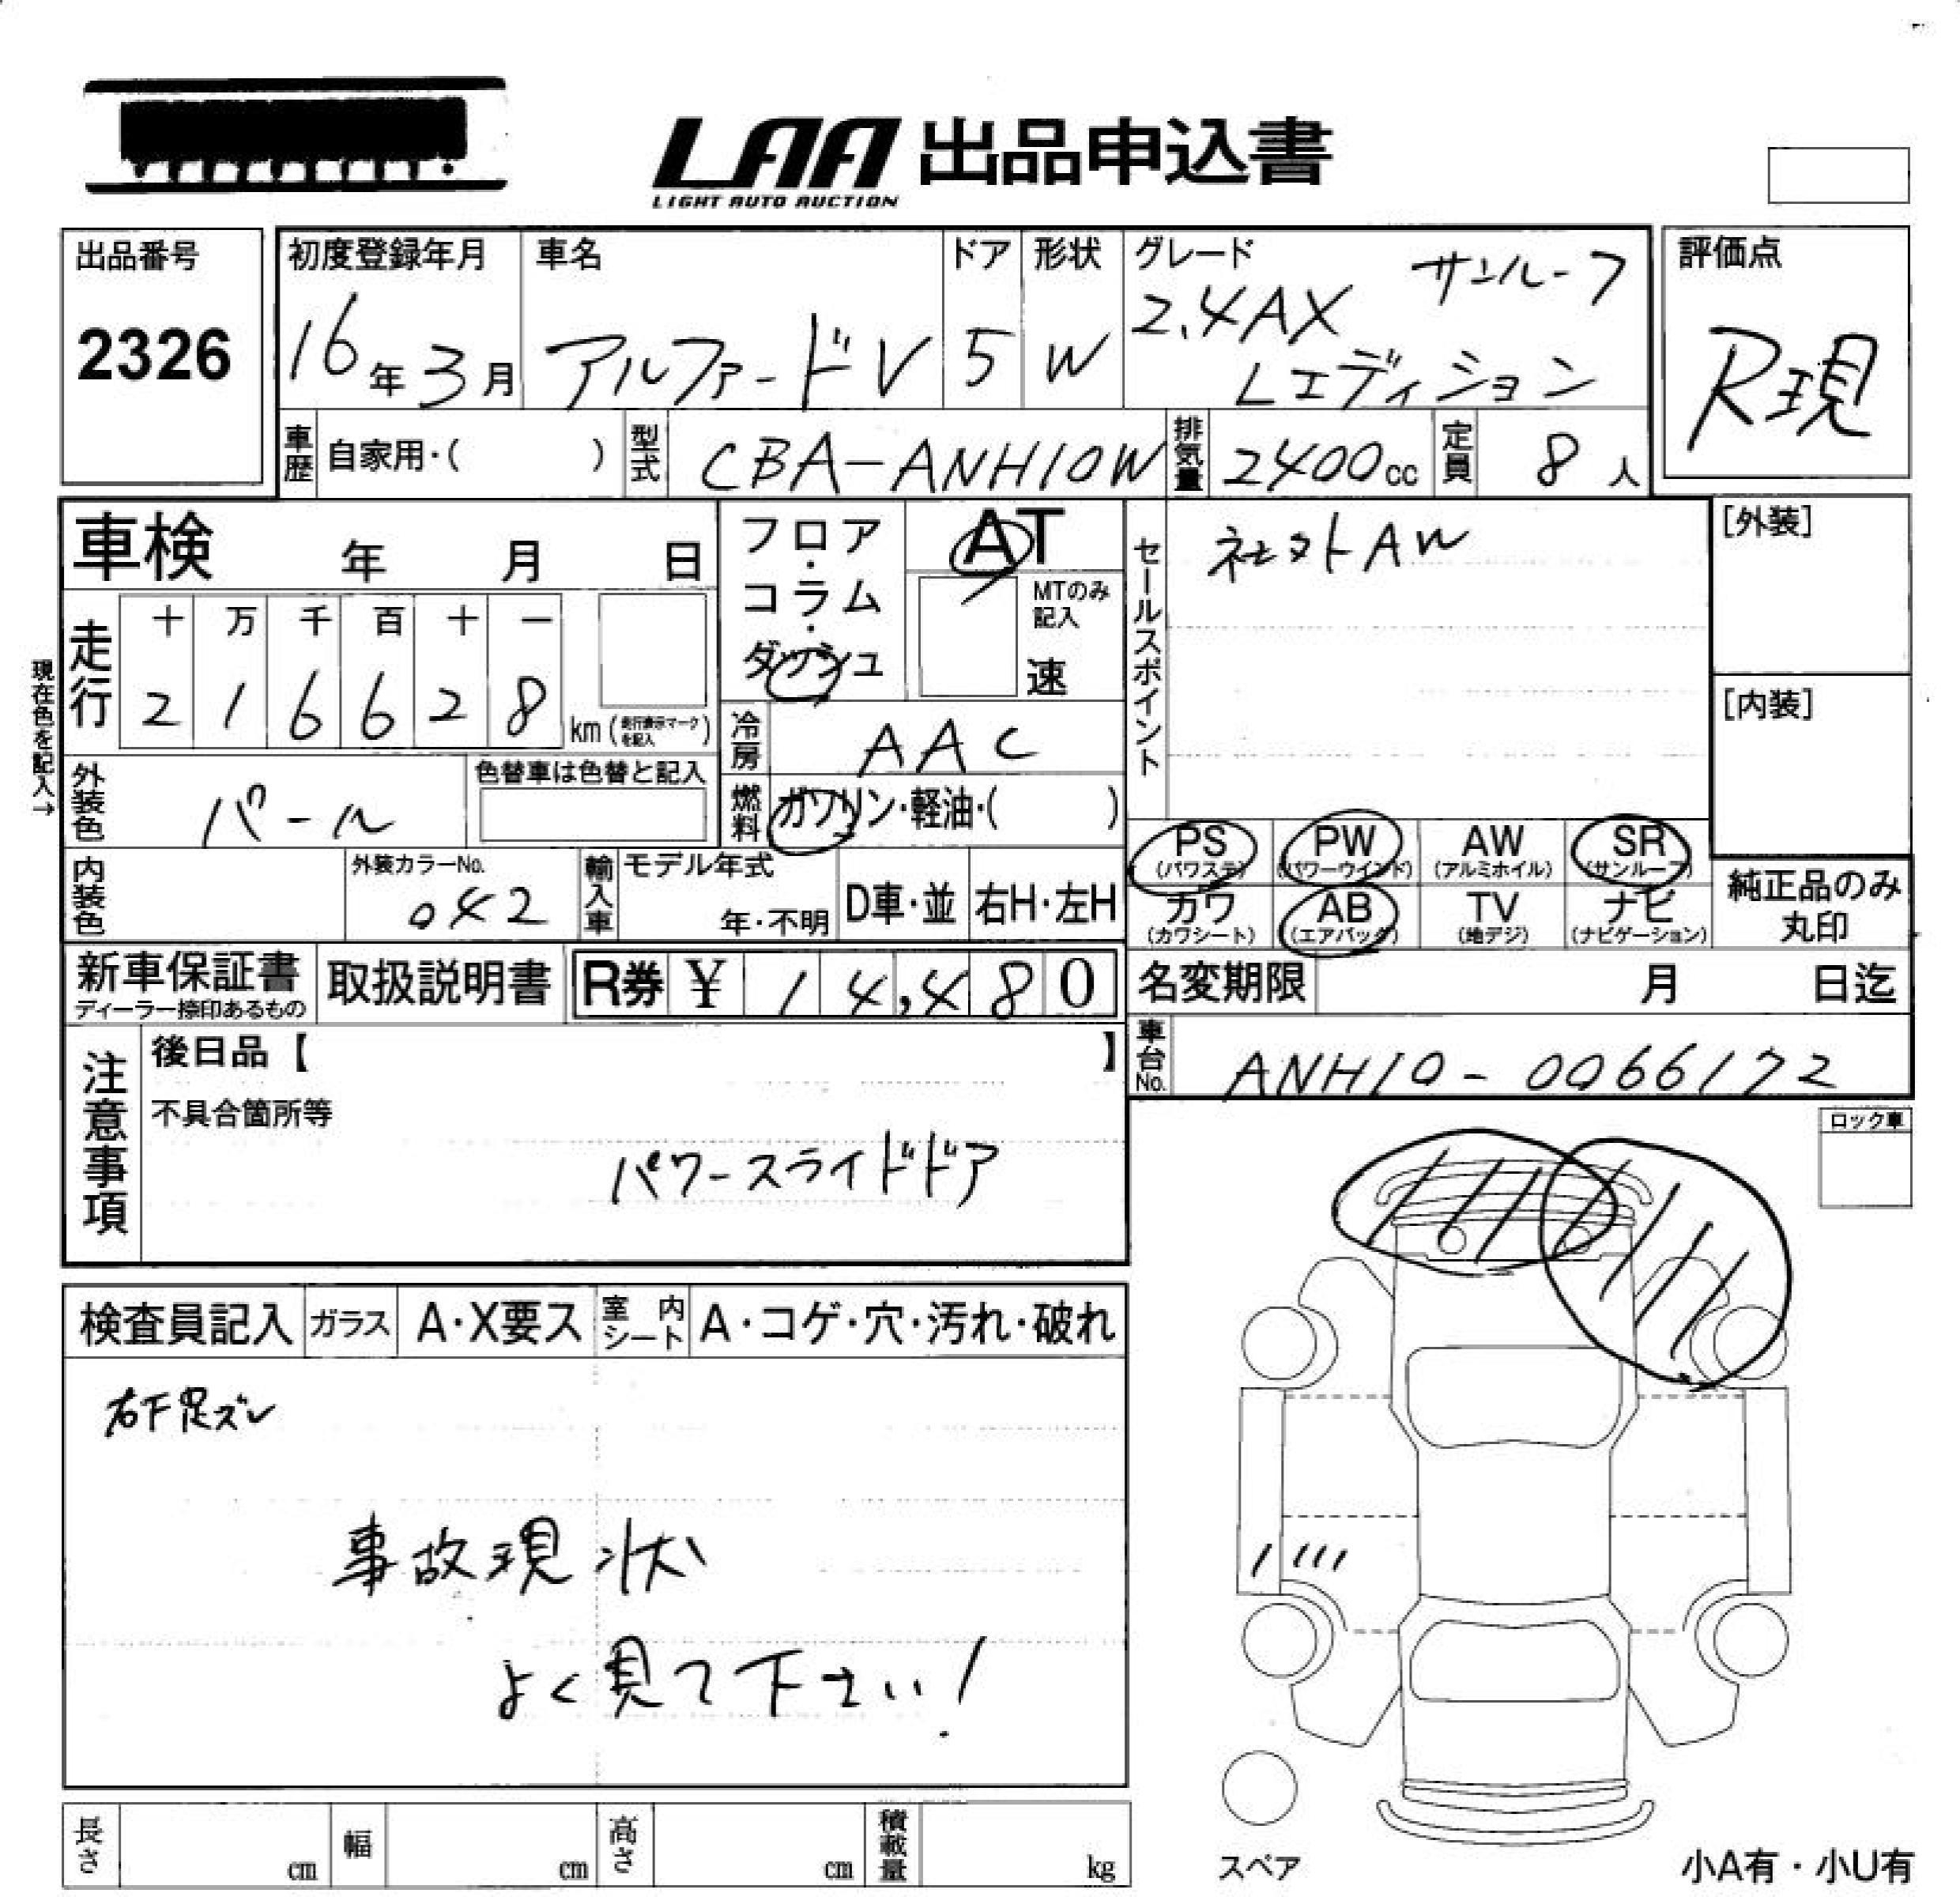 LAA 出品申込書
LIGHT AUTO AUCTION
出品番号
2326
初度登録年月
16年3月
車名
アルファードV
ドア
5
形状
W
グレード
サンルーフ
2.4AX
Lエディション
評価点
R現
車歴
自家用・( )
型式
CBA-ANH10W
排気量
2400cc
定員
8人
車検 年 月 日
走行
十 万 千 百 十 一
2 1 6 6 2 8
km (走行表示マークを記入)
現在色を記入→
外装色
パール
色替車は色替と記入
内装色
外装カラーNo.
042
フロア・コラム・ダッシュ
AT
MTのみ記入
速
冷房
AAC
燃料
ガソリン・軽油・( )
輸入車
モデル年式
年・不明
D車・並
右H・左H
セールスポイント
社外AW
[外装]
[内装]
PS (パワステ)
PW (パワーウインド)
AW (アルミホイル)
SR (サンルーフ)
カワ (カワシート)
AB (エアバッグ)
TV (地デジ)
ナビ (ナビゲーション)
純正品のみ
丸印
新車保証書
ディーラー捺印あるもの
取扱説明書
R券 ¥ 14,480
名変期限 月 日迄
車台No.
ANH10-0066172
注意事項
後日品【 】
不具合箇所等
パワースライドドア
ロック車
検査員記入
ガラス
A・X要ス
室内シート
A・コゲ・穴・汚れ・破れ
右下足ズレ
事故現状
よく見て下さい!
長さ cm
幅 cm
高さ cm
積載量 kg
スペア
小A有・小U有